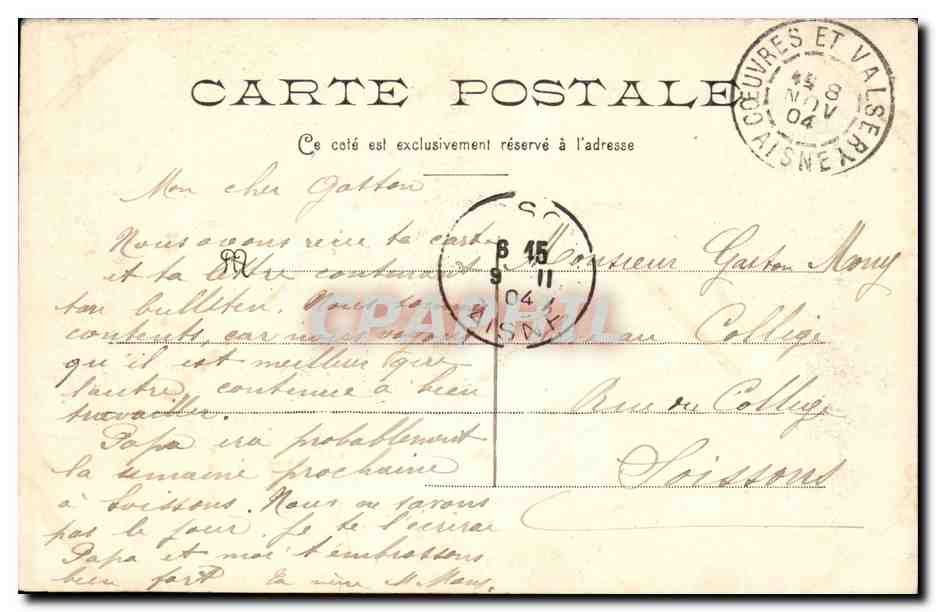 CARTE POSTALE
Ce coté est exclusivement réservé à l'adresse
COEUVRES ET VALSERY
8
NOV
04
AISNE
Mon cher Gaston
Nous avons reçu ta carte
et ta lettre contenant
ton bulletin. Nous
contents, car nous
qu'il est meilleur que
l'autre, continue à bien
travailler.
Papa ira probablement
la semaine prochaine
à Soissons. Nous ne savons
pas le jour. Je te l'écrirai
Papa et moi t'embrassons
bien fort ta mère M.
SO
6 15
9 11
04
AISNE
Monsieur Gaston Mouy
au Collège
Rue du Collège
Soissons
CPAPHIL